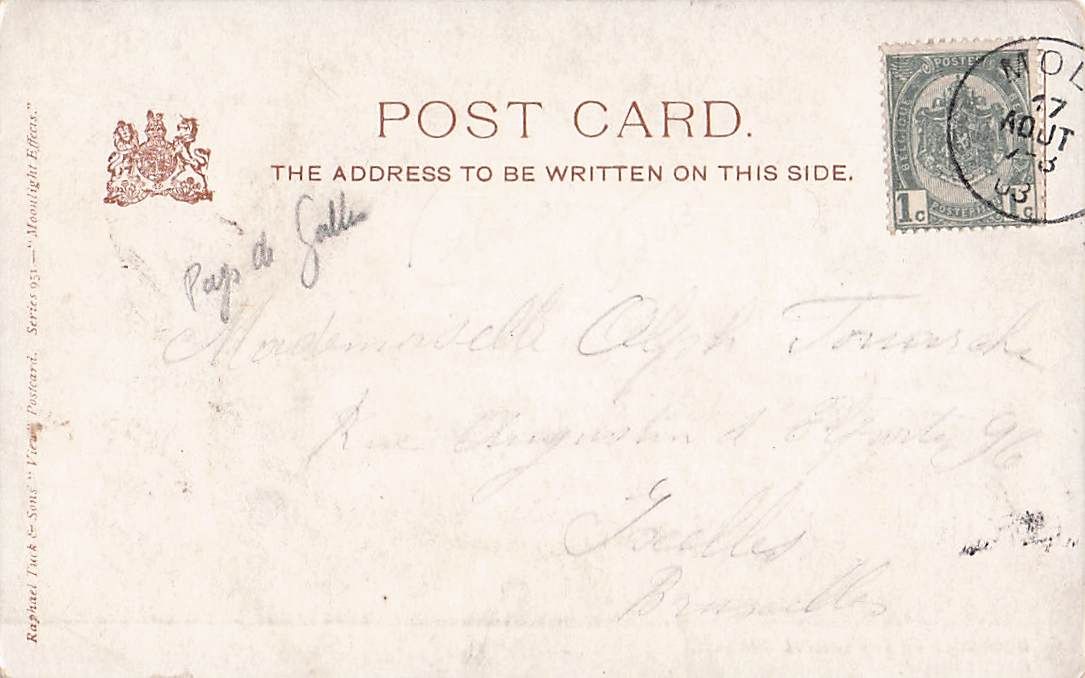 POST CARD.
THE ADDRESS TO BE WRITTEN ON THIS SIDE.
Raphael Tuck & Sons' "View" Postcard. Series 931—"Moonlight Effects."
POSTES
1c 1c
MOL
17
AOUT
7-8
03
Pays de Galles
Mademoiselle Alph
Rue Augustin d 96
Ixelles
Bruxelles